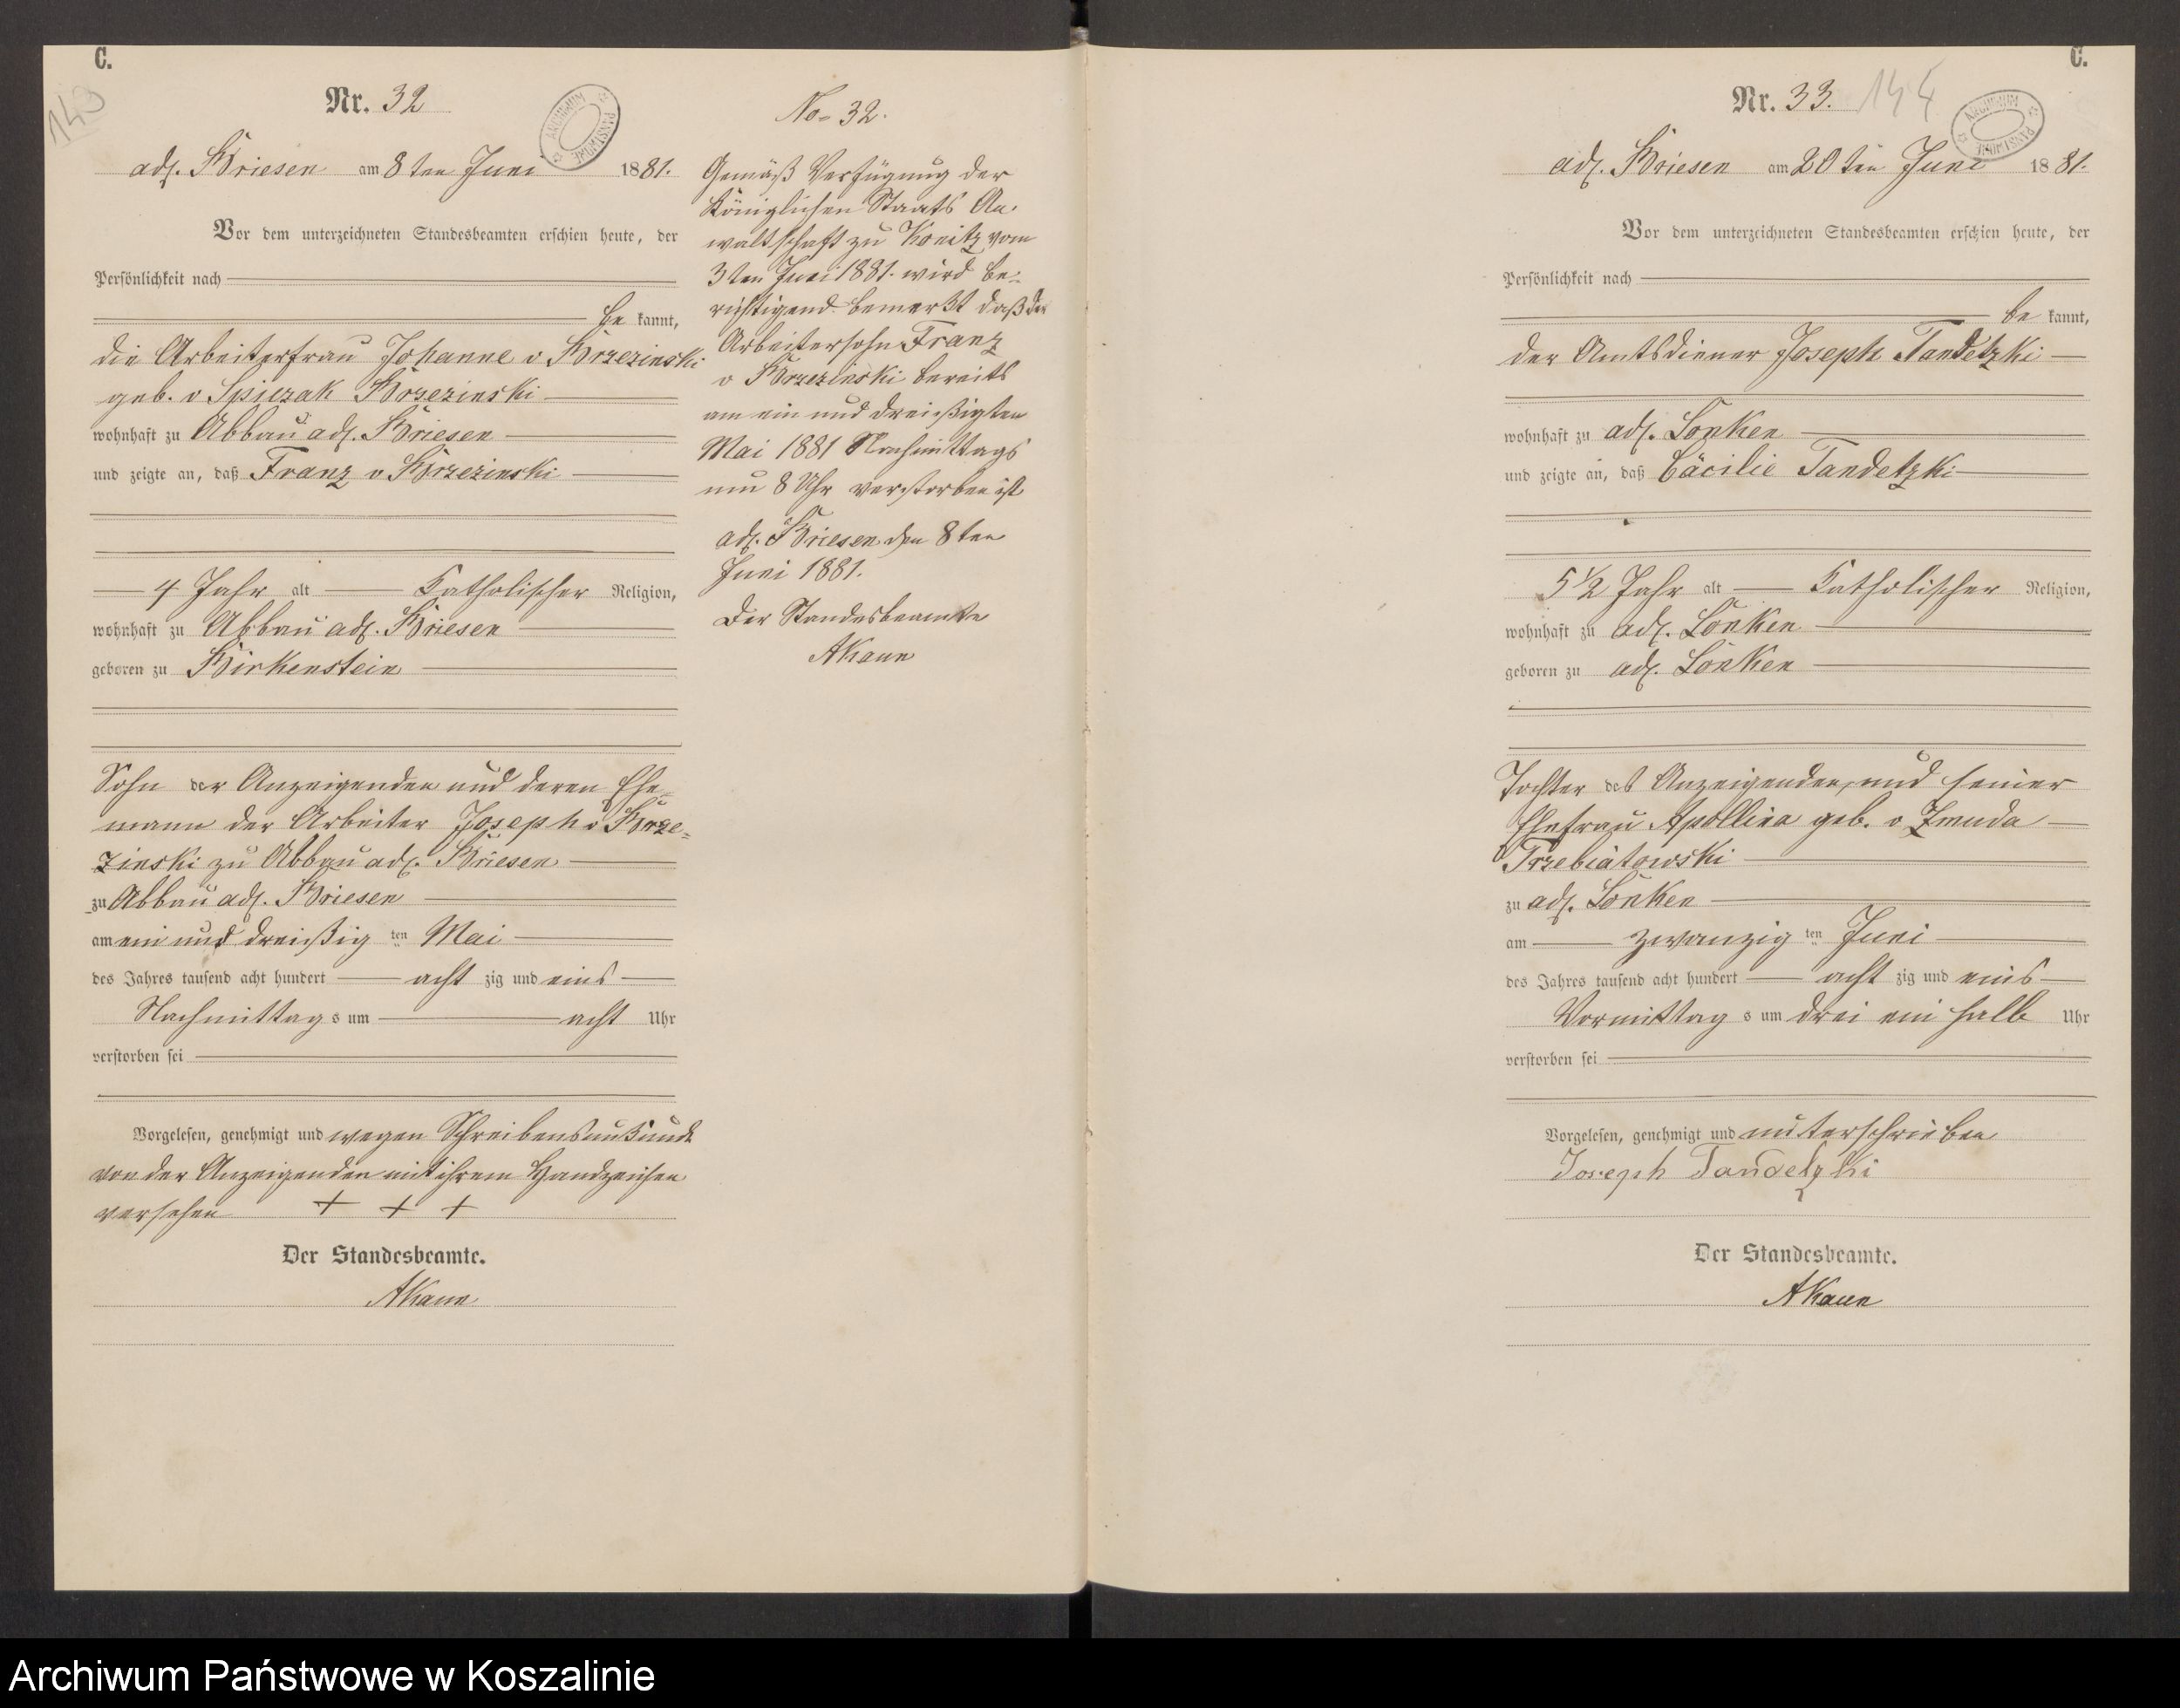 C.
143
Nr. 32
ARCHIWUM PAŃSTWOWE
adl. Briesen am 8ten Juni 1881.
Vor dem unterzeichneten Standesbeamten erschien heute, der
Persönlichkeit nach
be kannt,
die Arbeiterfrau Johanne v Brzezinski
geb. v Spiczak Brzezinski
wohnhaft zu Abbau adl. Briesen
und zeigte an, daß Franz v Brzezinski
4 Jahr alt Katholischer Religion,
wohnhaft zu Abbau adl. Briesen
geboren zu Birkenstein
Sohn der Anzeigenden und deren Ehe-
mann der Arbeiter Joseph v Brze=
zinski zu Abbau adl. Briesen
zu Abbau adl. Briesen
am ein und dreißig ten Mai
des Jahres tausend acht hundert acht zig und eins
Nachmittag s um acht Uhr
verstorben sei
Vorgelesen, genehmigt und wegen Schreibensunkunde
von der Anzeigenden mit ihrem Handzeichen
versehen + + +
Der Standesbeamte.
AKaun
No= 32.
Gemäß Verfügung der
Königlichen Staats An-
waltschaft zu Konitz vom
3ten Juni 1881. wird be-
richtigend bemerkt daß der
Arbeitersohn Franz
v Brzezinski bereits
am ein und dreißigten
Mai 1881 Nachmittags
um 8 Uhr verstorben ist
adl. Briesen den 8ten
Juni 1881.
Der Standesbeamte
AKaun
C.
Nr. 33. 144
ARCHIWUM PAŃSTWOWE
adl. Briesen am 20ten Juni 1881.
Vor dem unterzeichneten Standesbeamten erschien heute, der
Persönlichkeit nach
be kannt,
der Amtsdiener Joseph Tandetzki
wohnhaft zu adl. Lonken
und zeigte an, daß Cäcilie Tandetzki
5 1/2 Jahr alt Katholischer Religion,
wohnhaft zu adl. Lonken
geboren zu adl. Lonken
Tochter des Anzeigenden, und seiner
Ehefrau Apollina geb. v Zmuda
Trzebiatowski
zu adl. Lonken
am zwanzig ten Juni
des Jahres tausend acht hundert acht zig und eins
Vormittag s um drei ein halb Uhr
verstorben sei
Vorgelesen, genehmigt und unterschrieben
Joseph Tandetzki
Der Standesbeamte.
AKaun
Archiwum Państwowe w Koszalinie